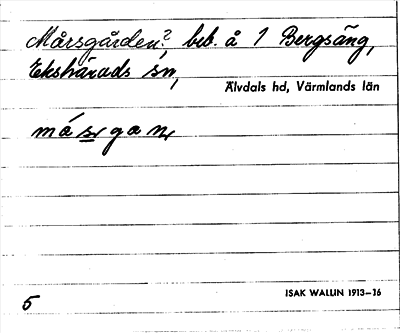 Mårsgården?, beb. å 1 Bergsäng,
Ekshärads sn,
Älvdals hd, Värmlands län
ISAK WALLIN 1913–16
5